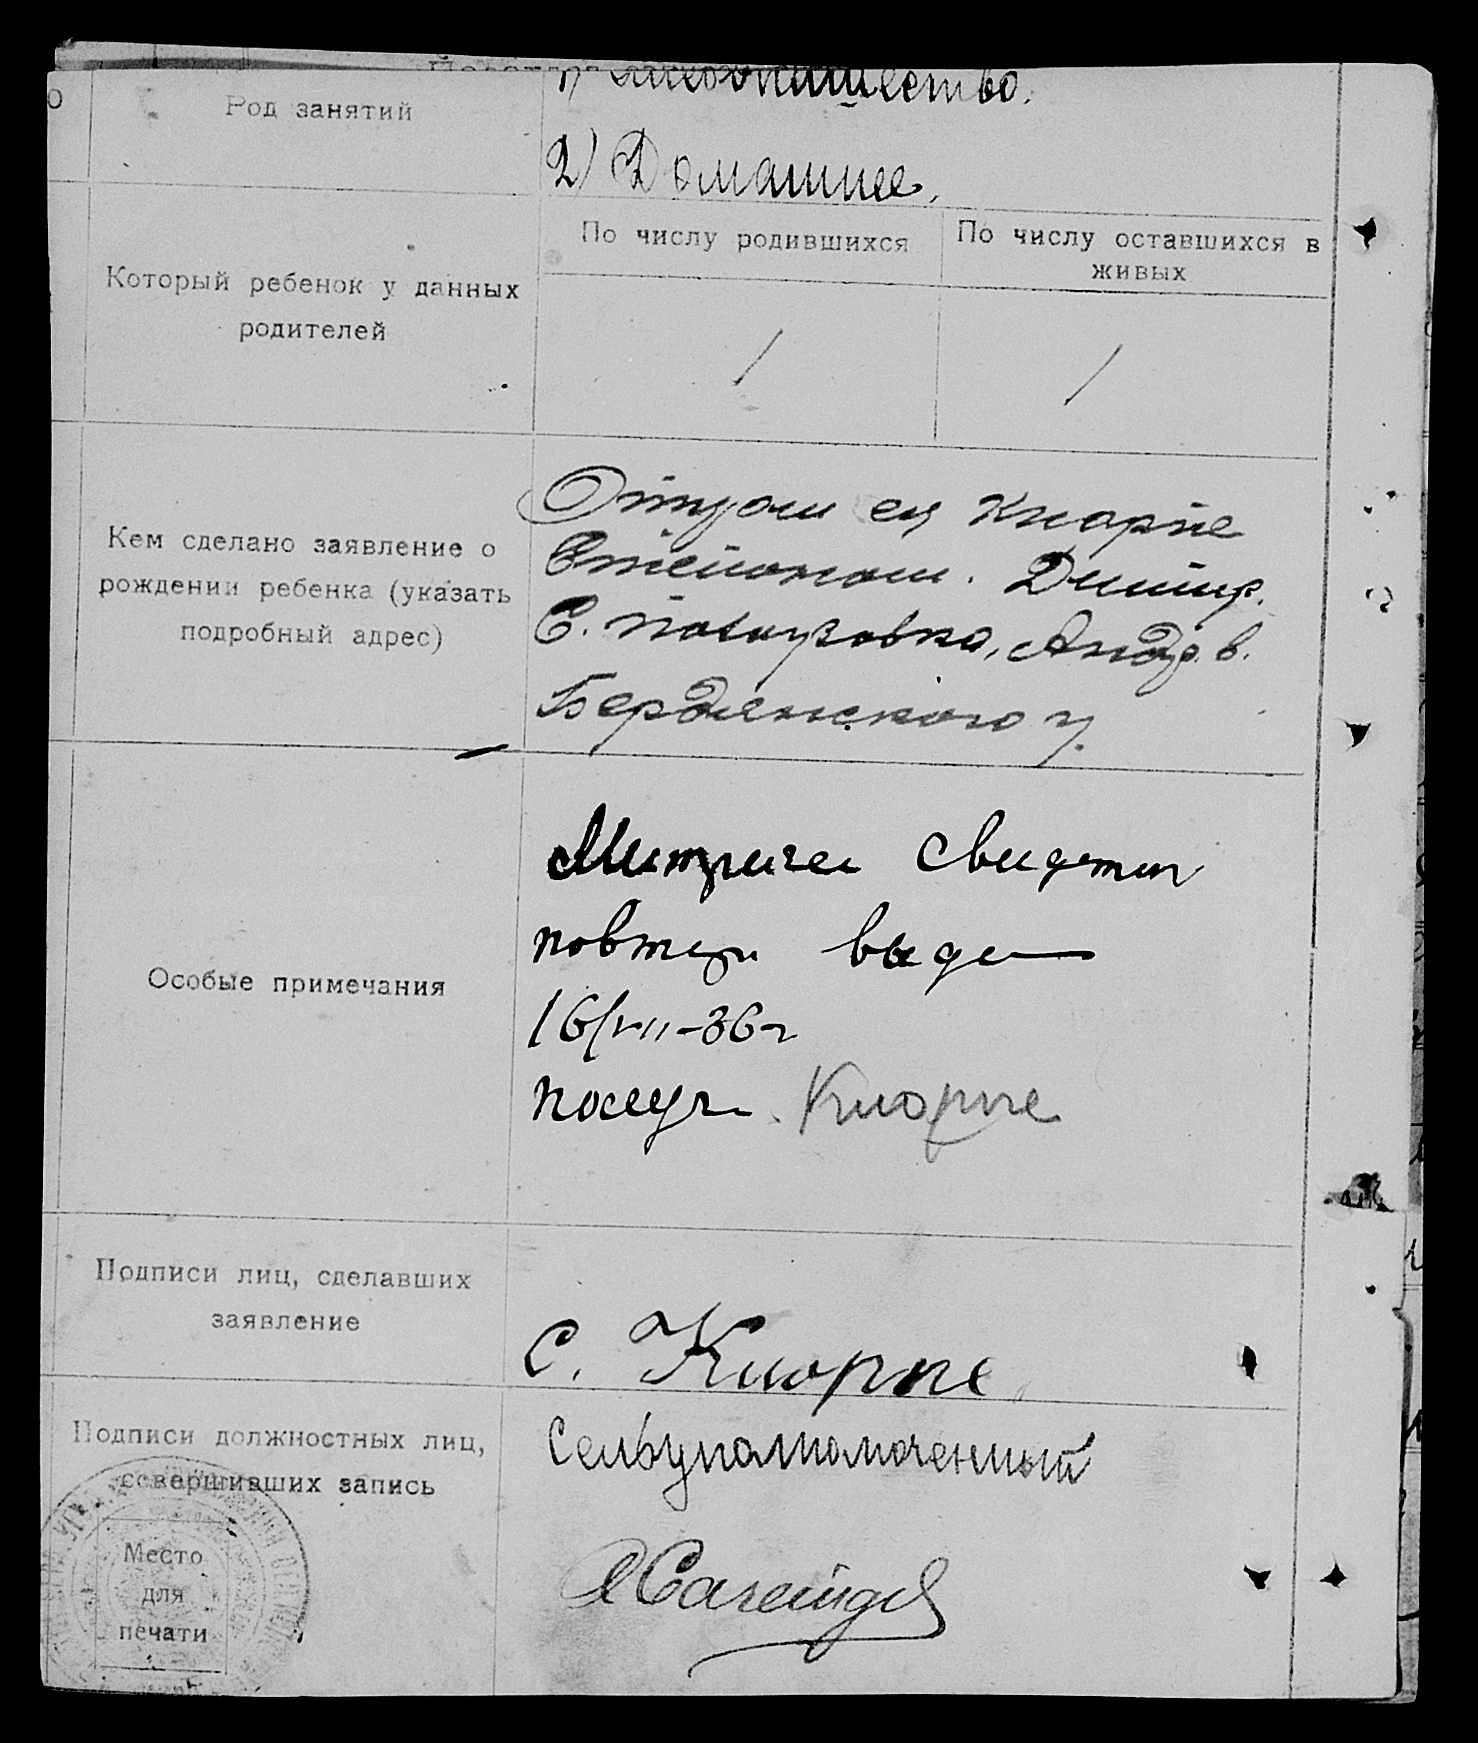 Род занятий
2) Домашнее.
Который ребенок у данных
родителей
По числу родившихся
По числу оставшихся в
живых
1
1
Кем сделано заявление о
рождении ребенка (указать
подробный адрес)
Отцом ея Кнорне
Степаном. Дмитр.
С. Андр. в.
Бердянского у.
Особые примечания
Метричес свидетел
повторн выдано
16/VII-36 г
получ. Кнорне
Подписи лиц, сделавших
заявление
С. Кнорне
Подписи должностных лиц,
совершивших запись
Сельуполномоченный
Место
для
печати